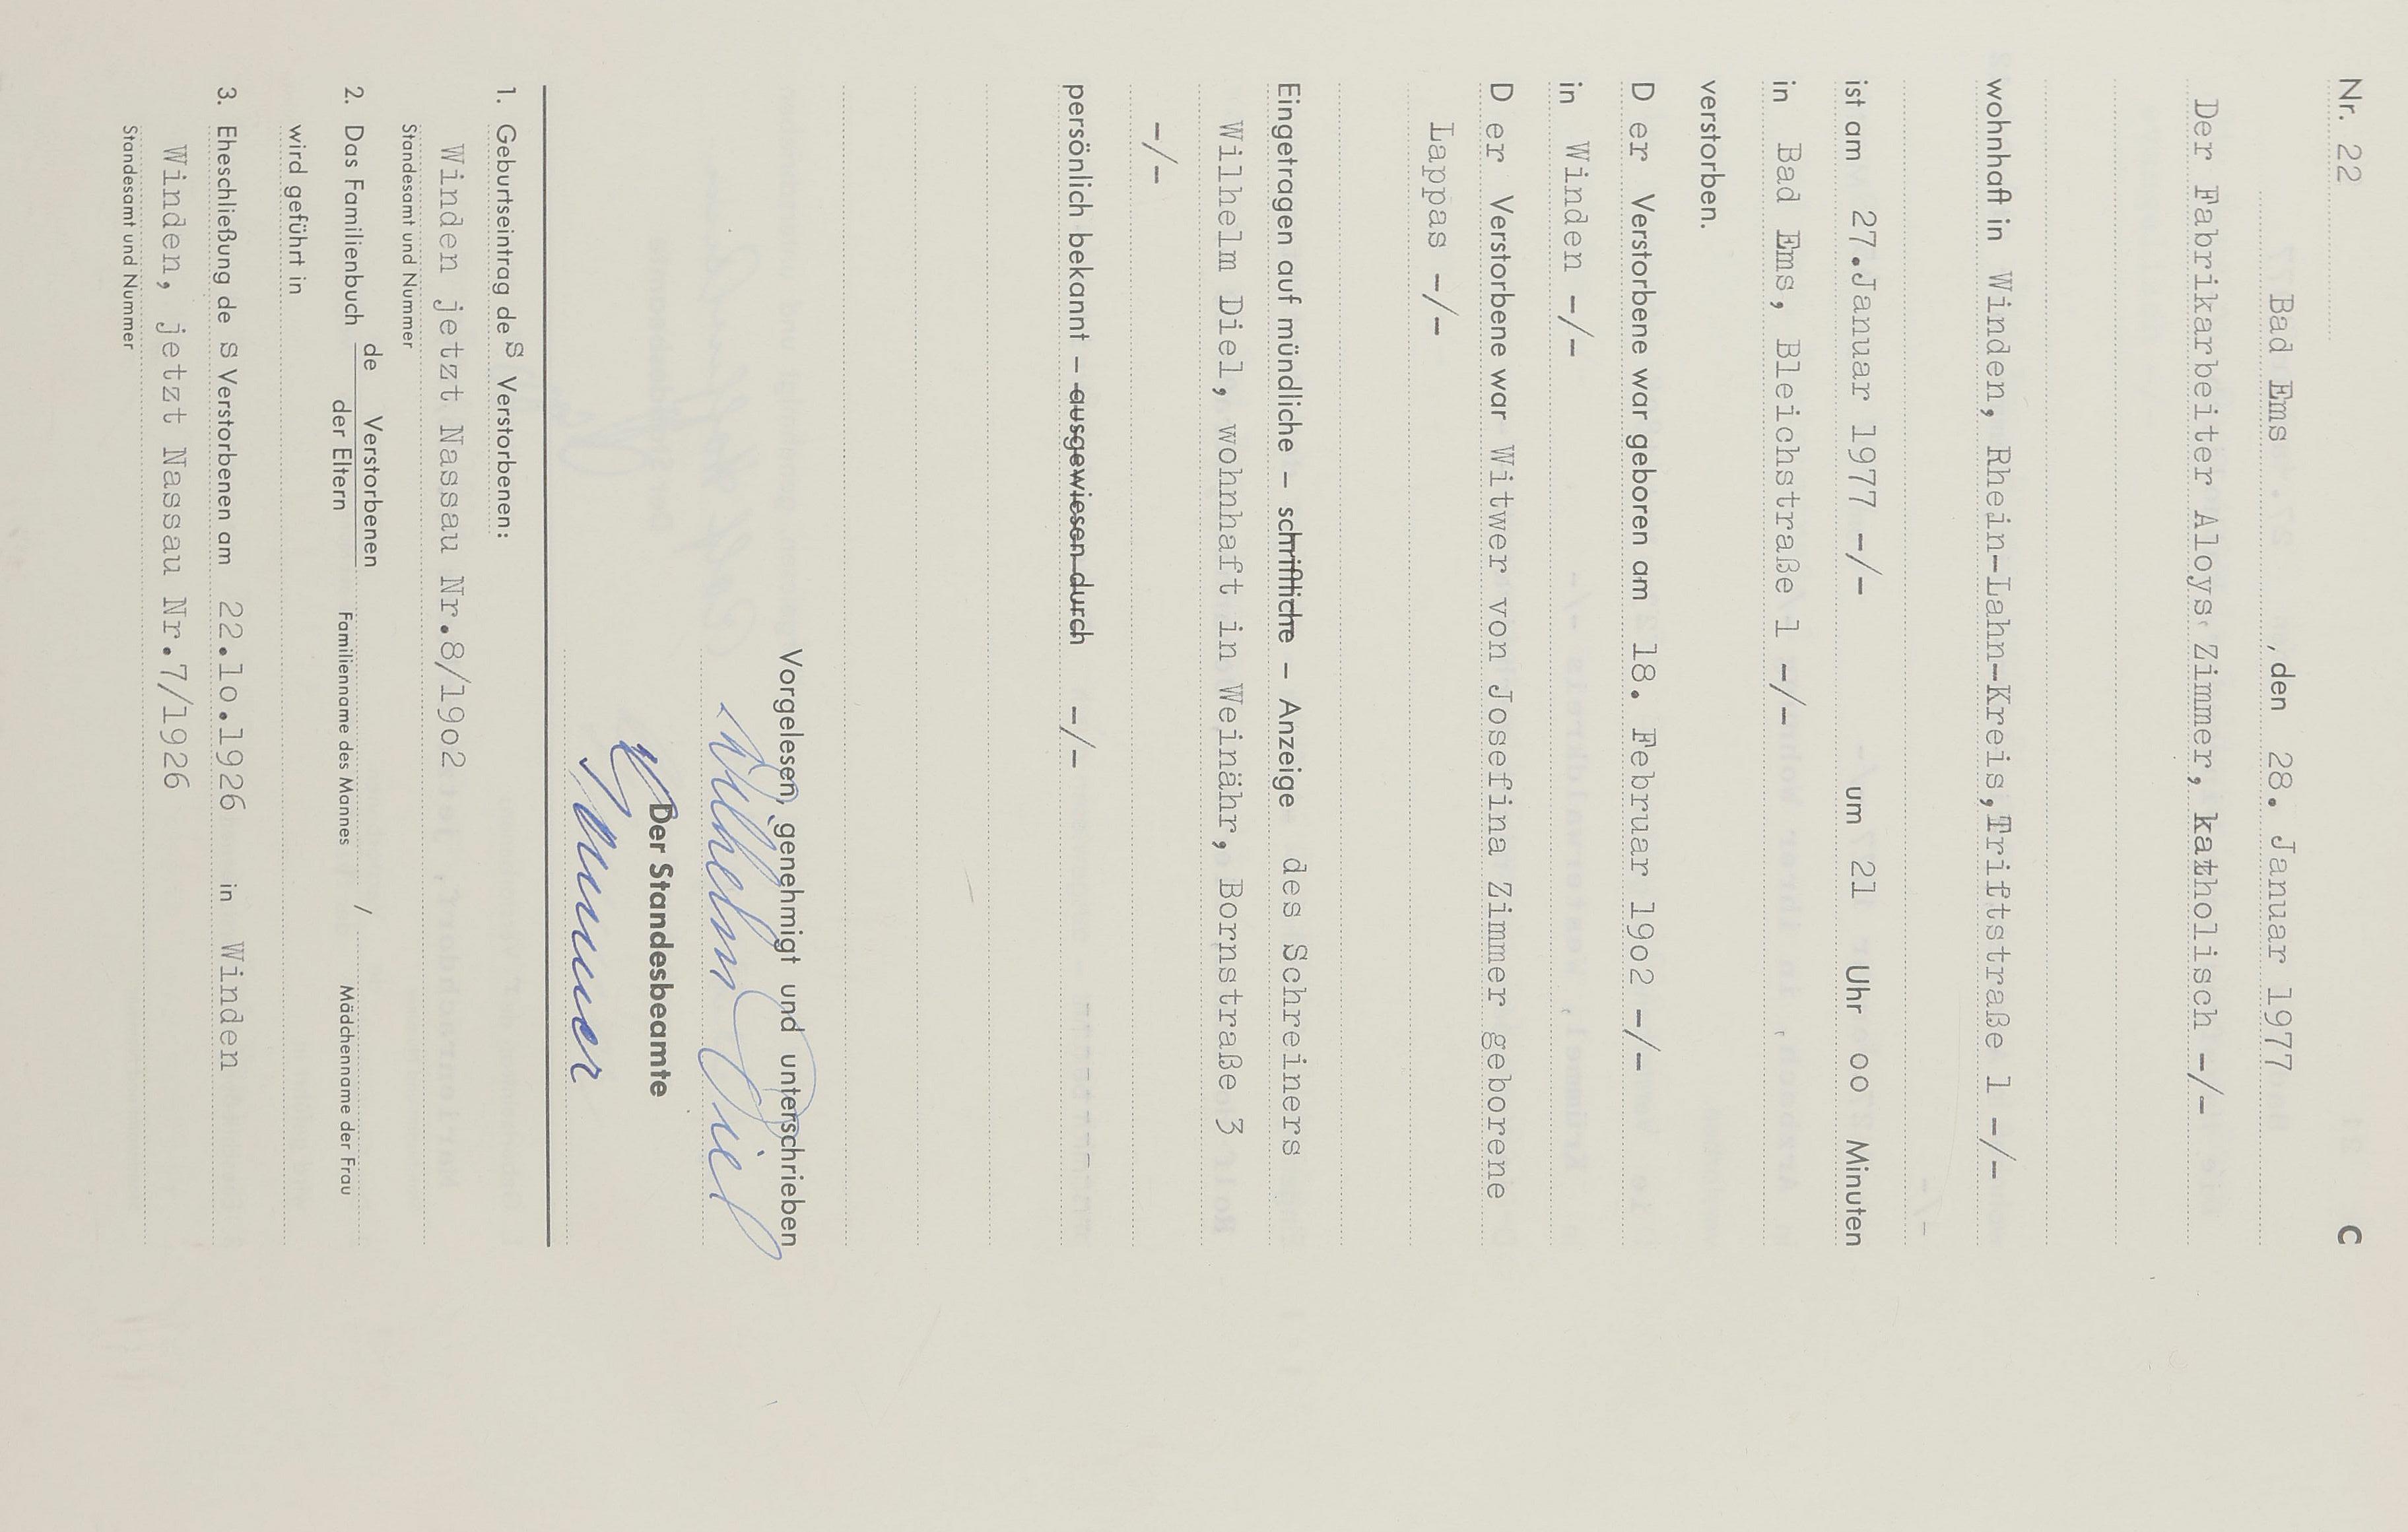 Nr. 22 C
Bad Ems , den 28. Januar 1977
Der Fabrikarbeiter Aloys Zimmer, katholisch -/-
wohnhaft in Winden, Rhein-Lahn-Kreis,Triftstraße 1 -/-
ist am 27.Januar 1977 -/- um 21 Uhr oo Minuten
in Bad Ems, Bleichstraße 1 -/-
verstorben.
D er Verstorbene war geboren am 18. Februar 19o2 -/-
in Winden -/-
D er Verstorbene war Witwer von Josefina Zimmer geborene
Lappas -/-
Eingetragen auf mündliche – schriftliche – Anzeige des Schreiners
Wilhelm Diel, wohnhaft in Weinähr, Bornstraße 3
-/-
persönlich bekannt – ausgewiesen durch -/-
Vorgelesen, genehmigt und unterschrieben
Wilhelm Diel
Der Standesbeamte
1. Geburtseintrag de s Verstorbenen:
Winden jetzt Nassau Nr.8/19o2
Standesamt und Nummer
2. Das Familienbuch de Verstorbenen
der Eltern Familienname des Mannes / Mädchenname der Frau
wird geführt in
3. Eheschließung de s Verstorbenen am 22.1o.1926 in Winden
Winden, jetzt Nassau Nr.7/1926
Standesamt und Nummer